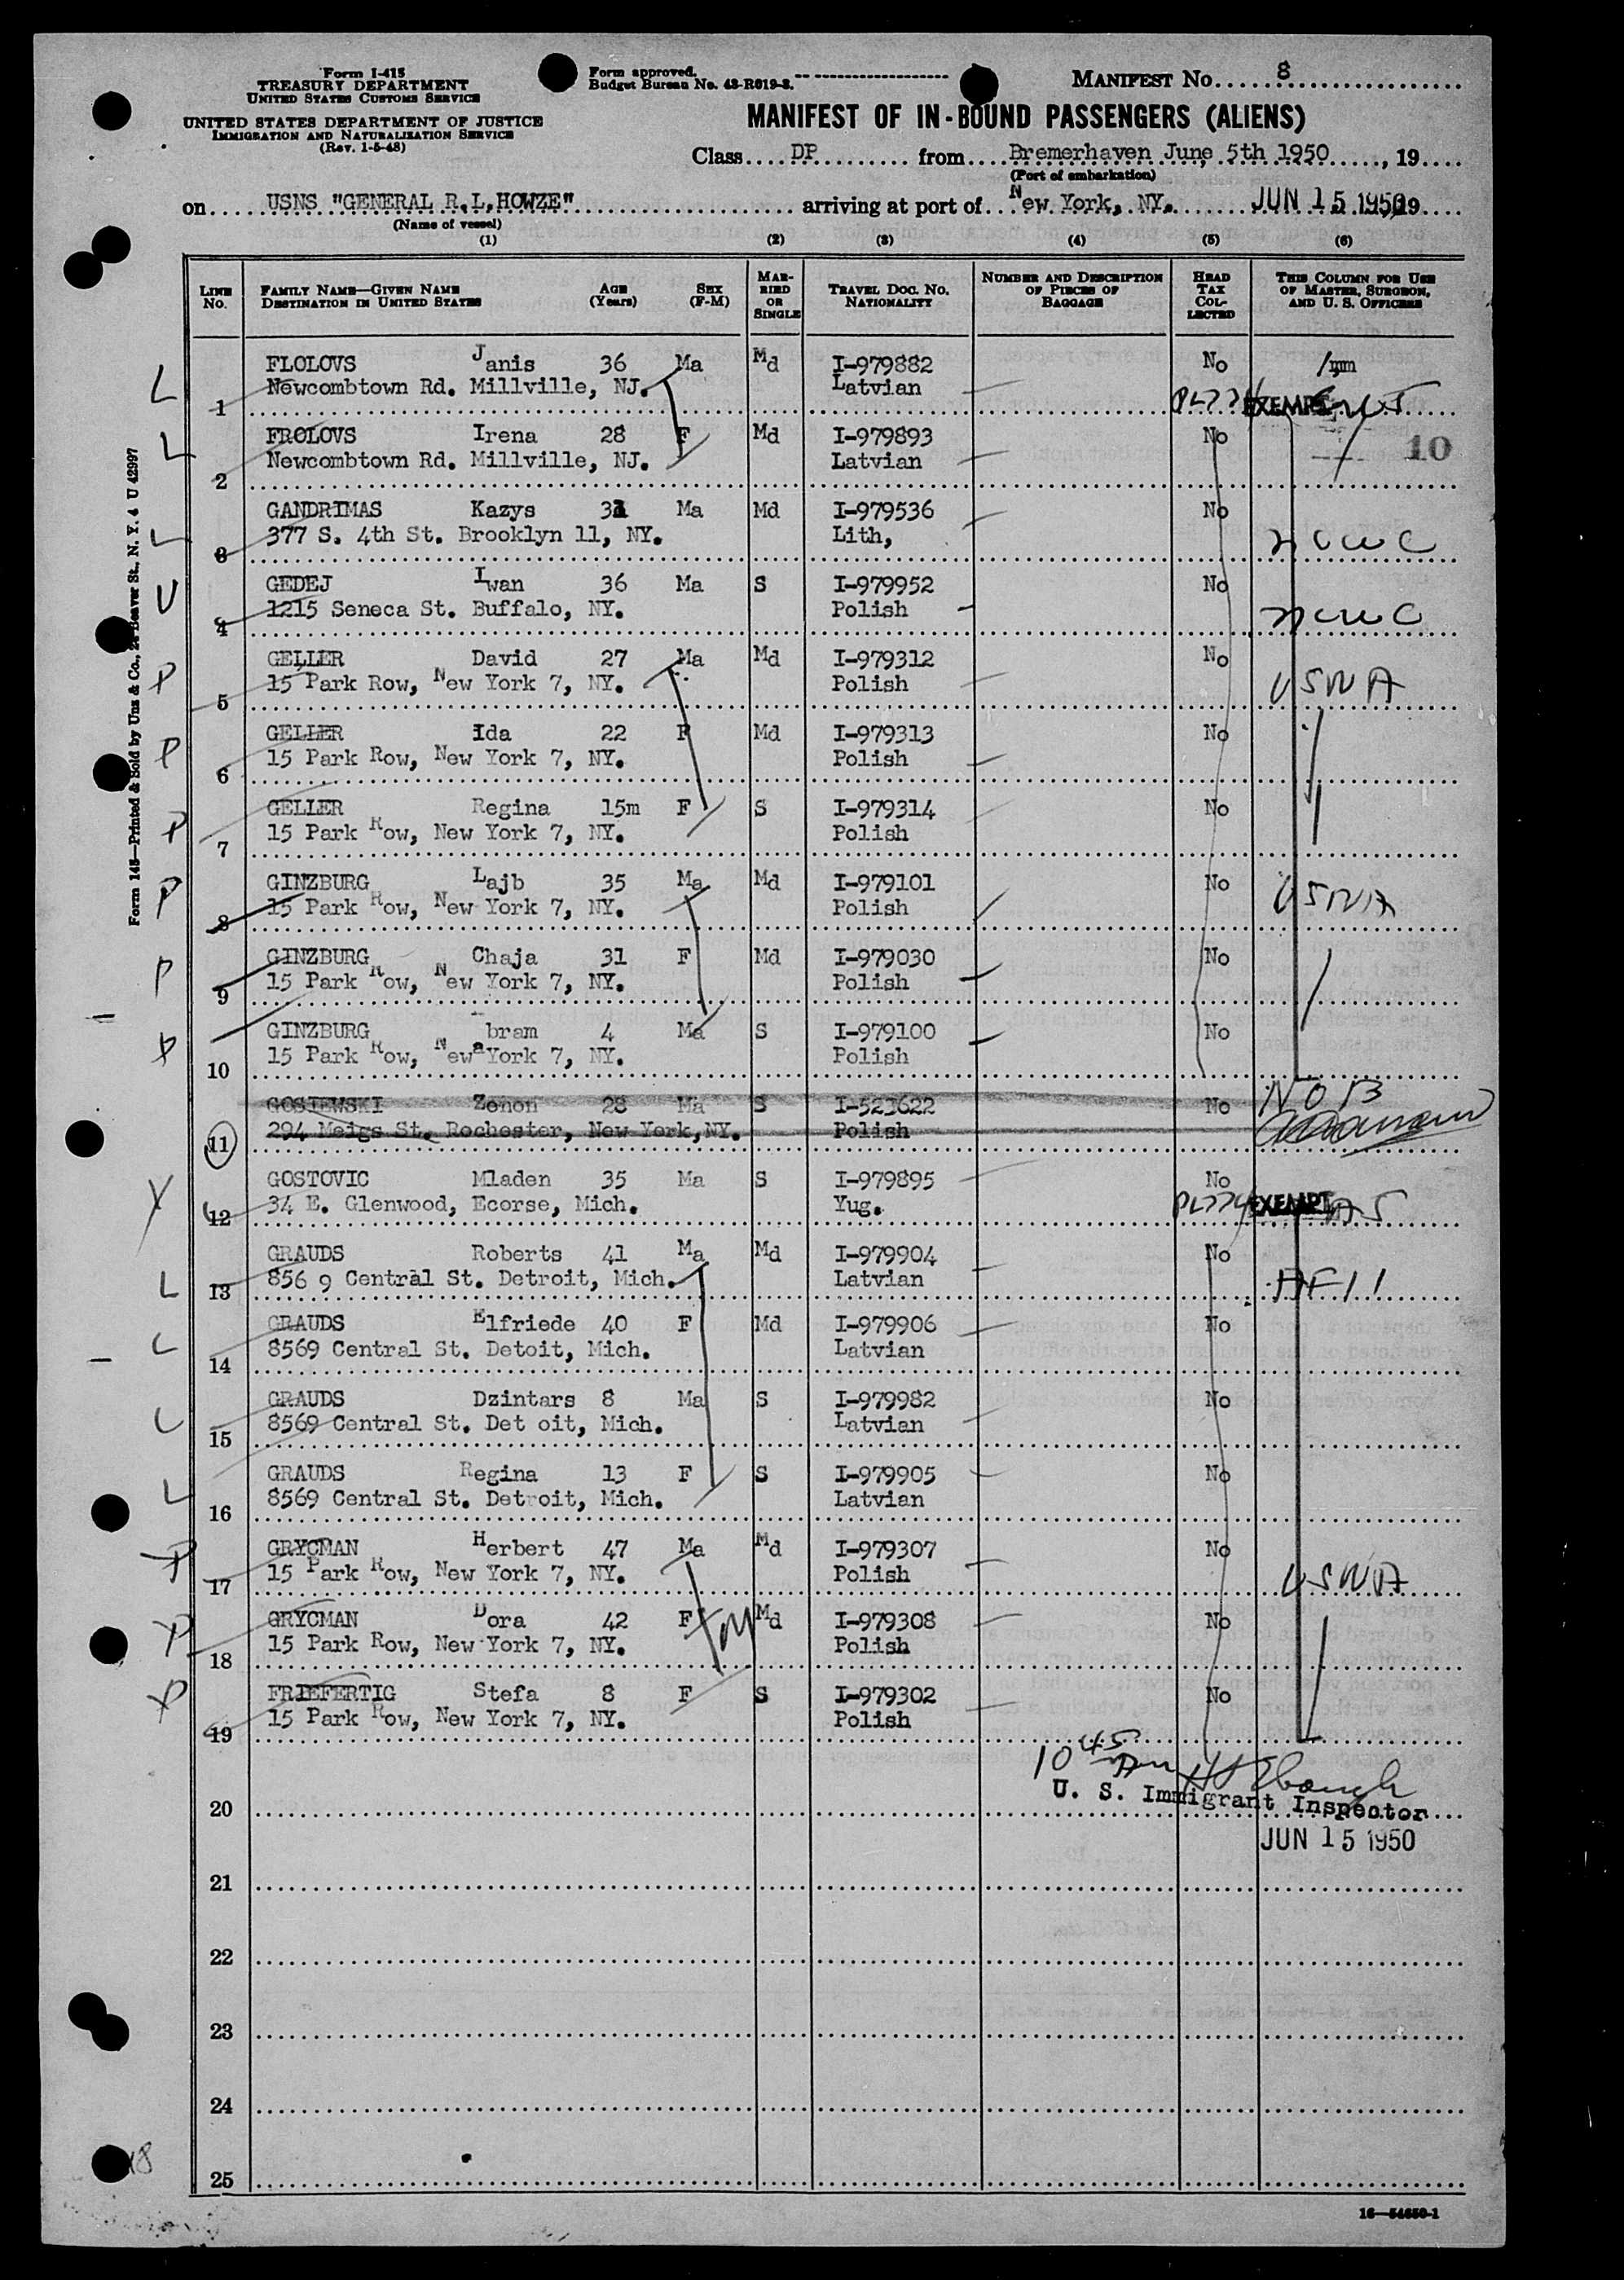 Form I-415
TREASURY DEPARTMENT
UNITED STATES CUSTOMS SERVICE
UNITED STATES DEPARTMENT OF JUSTICE
IMMIGRATION AND NATURALIZATION SERVICE
(Rev. 1-5-48)
Form approved.
Budget Bureau No. 43-R019-3.
MANIFEST No. 8
MANIFEST OF IN-BOUND PASSENGERS (ALIENS)
Class DP from Bremerhaven June, 5th 1950, 19
(Port of embarkation)
on USNS "GENERAL R.L.HOWZE" arriving at port of New York, NY. JUN 15 1950 19
(Name of vessel)
(1) (2) (3) (4) (5) (6)
LINE No. FAMILY NAME—GIVEN NAME DESTINATION IN UNITED STATES AGE (Years) SEX (F-M) MARRIED OR SINGLE TRAVEL DOC. NO. NATIONALITY NUMBER AND DESCRIPTION OF PIECES OF BAGGAGE HEAD TAX COLLECTED THIS COLUMN FOR USE OF MASTER, SURGEON, AND U. S. OFFICERS
L FLOLOVS Janis 36 Ma Md I-979882 No
1 Newcombtown Rd. Millville, NJ. Latvian PL774 EXEMPT
L FROLOVS Irena 28 F Md I-979893 No 10
2 Newcombtown Rd. Millville, NJ. Latvian
GANDRIMAS Kazys 31 Ma Md I-979536 No
L 3 377 S. 4th St. Brooklyn 11, NY. Lith, NCWC
U GEDEJ Iwan 36 Ma S I-979952 No
4 1215 Seneca St. Buffalo, NY. Polish NCWC
P GELLER David 27 Ma Md I-979312 No
5 15 Park Row, New York 7, NY. Polish USNA
P GELLER Ida 22 F Md I-979313 No
6 15 Park Row, New York 7, NY. Polish
P GELLER Regina 15m F S I-979314 No
7 15 Park Row, New York 7, NY. Polish
P GINZBURG Lajb 35 Ma Md I-979101 No
8 15 Park Row, New York 7, NY. Polish USNA
P GINZBURG Chaja 31 F Md I-979030 No
9 15 Park Row, New York 7, NY. Polish
P GINZBURG bram 4 Ma S I-979100 No
10 15 Park Row, NewaYork 7, NY. Polish
GOSIEWSKI Zenon 28 Ma S I-523622 No NOB
11 294 Meigs St. Rochester, New York, NY. Polish
GOSTOVIC Mladen 35 Ma S I-979895 No
Y 12 34 E. Glenwood, Ecorse, Mich. Yug. PL774 EXEMPT
GRAUDS Roberts 41 Ma Md I-979904 No
L 13 856 9 Central St. Detroit, Mich. Latvian AFII
L GRAUDS Elfriede 40 F Md I-979906 No
14 8569 Central St. Detoit, Mich. Latvian
L GRAUDS Dzintars 8 Ma S I-979982 No
15 8569 Central St. Det oit, Mich. Latvian
L GRAUDS Regina 13 F S I-979905 No
16 8569 Central St. Detroit, Mich. Latvian
P GRYCMAN Herbert 47 Ma Md I-979307 No
17 15 Park Row, New York 7, NY. Polish USNA
P GRYCMAN Dora 42 F Md I-979308 No
18 15 Park Row, New York 7, NY. Polish
P FRIEFERTIG Stefa 8 F S I-979302 No
19 15 Park Row, New York 7, NY. Polish
10 45 Am
20 U. S. Immigrant Inspector
JUN 15 1950
21
22
23
24
25
18
16—54650-1
Form 145—Printed & Sold by Unz & Co., 24 Beaver St., N. Y. 4 U 42997